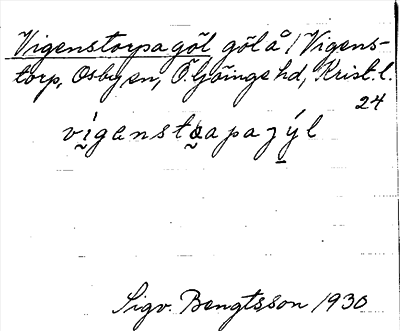 Vigenstorpagöl göl å / Vigens-
torp, Osby sn, Ö. Göinge hd, Krist. l.
24
vḭ́gensto̰apaʒý̠l
Sigv. Bengtsson 1930